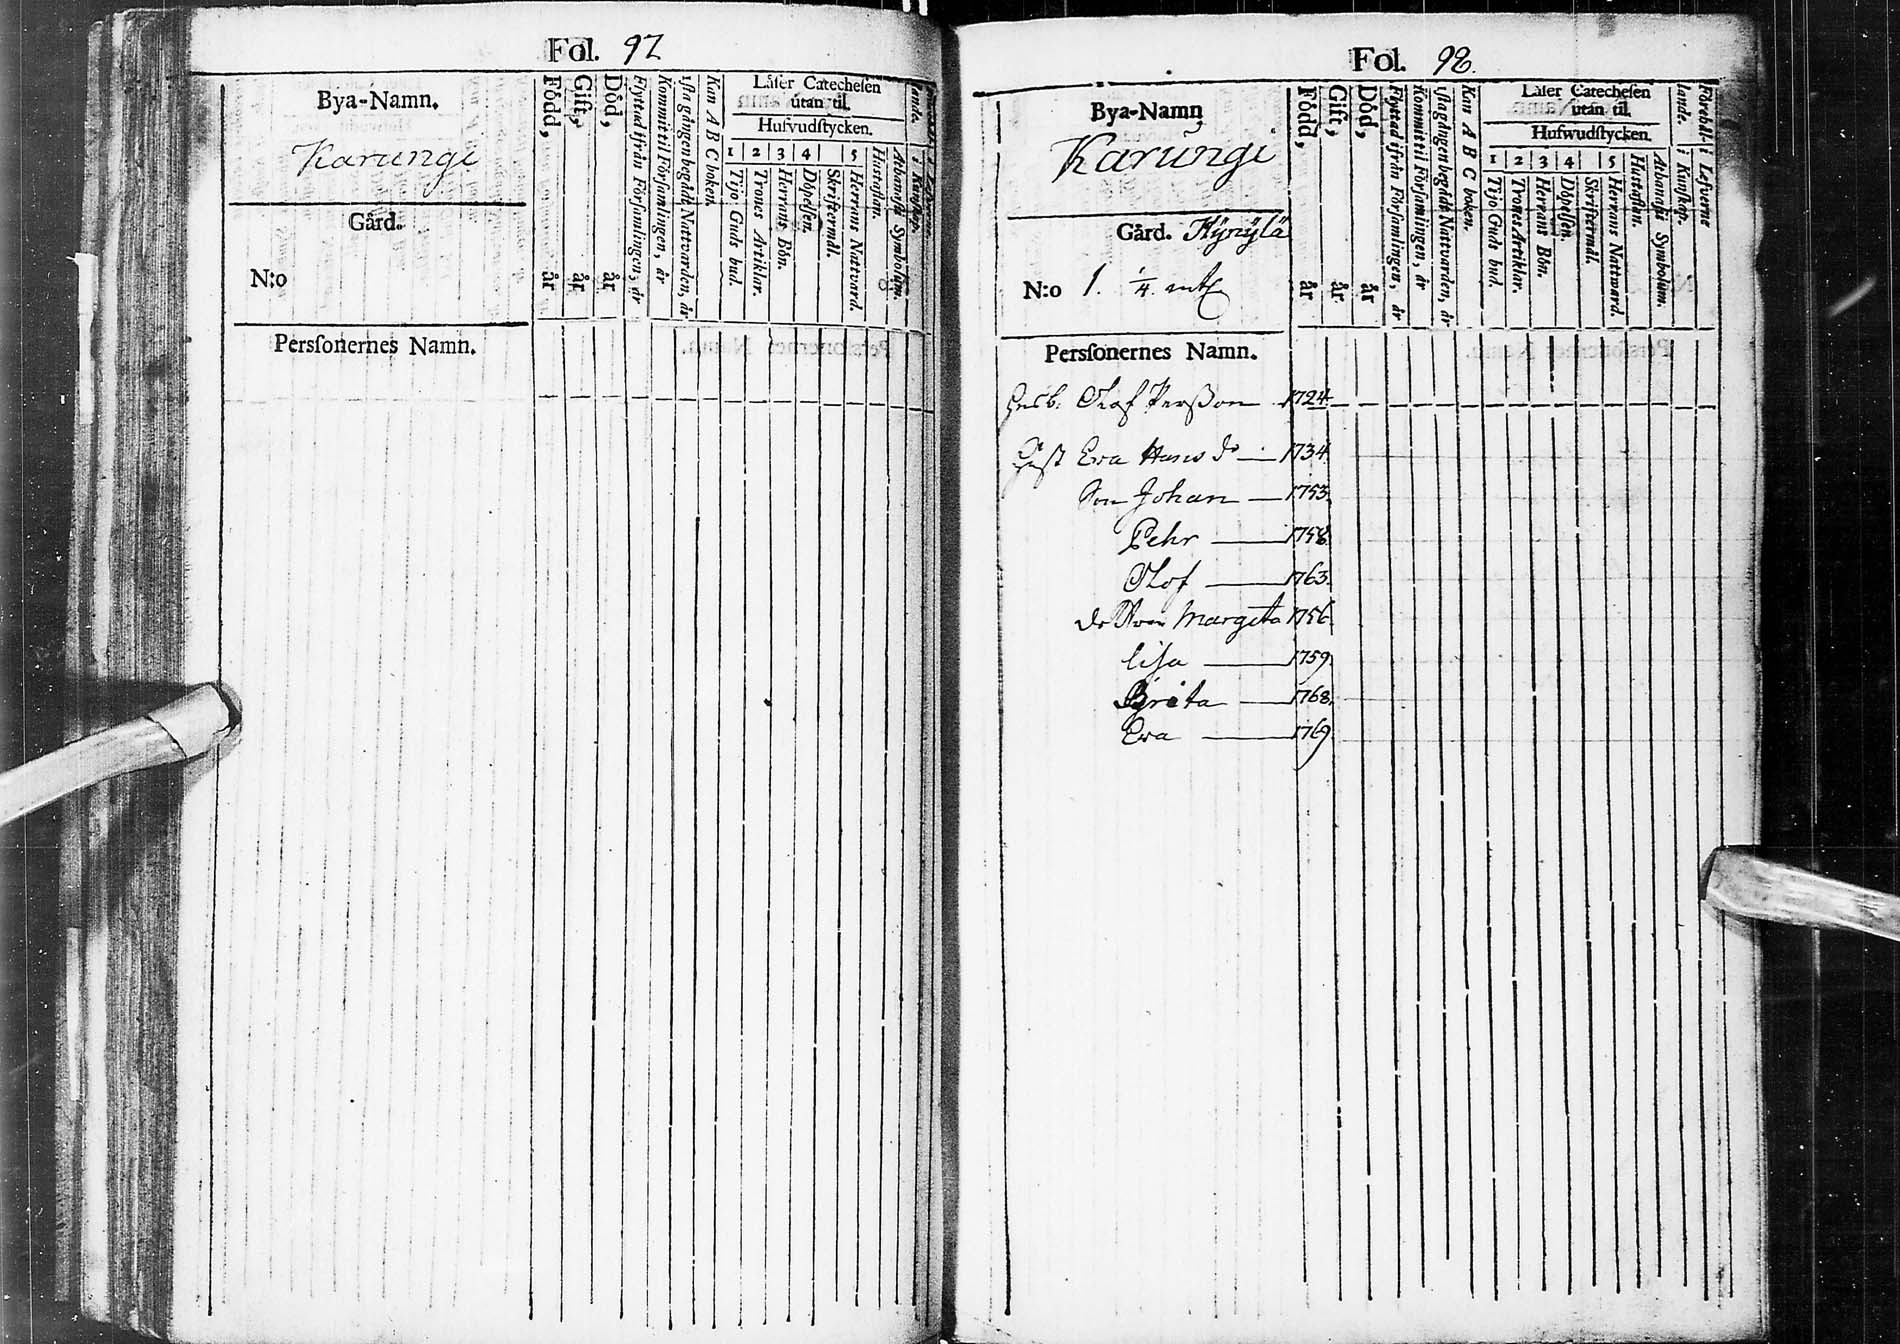 Fol. 97
Bya-Namn.
Karungi
Gård.
N:o
Perſonernes Namn.
Född, år
Gift, år
Död, år
Flyttad ifrån Förſamlingen, år
Kommit til Förſamlingen, år
1ſta gången begådt Nattvarden, år
Kan A B C boken.
Läſer Catecheſen
utan til.
Hufvudſtycken.
1 2 3 4 5
Tijo Guds bud.
Trones Artiklar.
Herrans Bön.
Döpelſen.
Skriftermål.
Herrans Nattvard.
Huſtaflan.
Athanaſii Symbolum.
lande. i Kunſkap.
Fol. 98.
Bya-Namn
Karungi
Gård. Kÿrÿlä
N:o 1. 1/4. mtl
Perſonernes Namn.
Född, år
Gift, år
Död, år
Flyttad ifrån Förſamlingen, år
Kommit til Förſamlingen, år
1ſta gången begådt Nattvarden, år
Kan A B C boken.
Läſer Catecheſen
utan til.
Hufwudſtycken.
1 2 3 4 5
Tijo Guds bud.
Trones Artiklar.
Herrans Bön.
Döpelſen.
Skriftermål.
Herrans Nattward.
Huſtaflan.
Athanaſii Symbolum.
lande. i Kunſkap.
Förehål- i Lefverne
Husb: Olof Perßon 1724
Hust Eva Hans dr 1734
Son Johan 1753
Pehr 1758
Olof 1763
dottren Margeta 1756
Lisa 1759
Brita 1768
Eva 1769